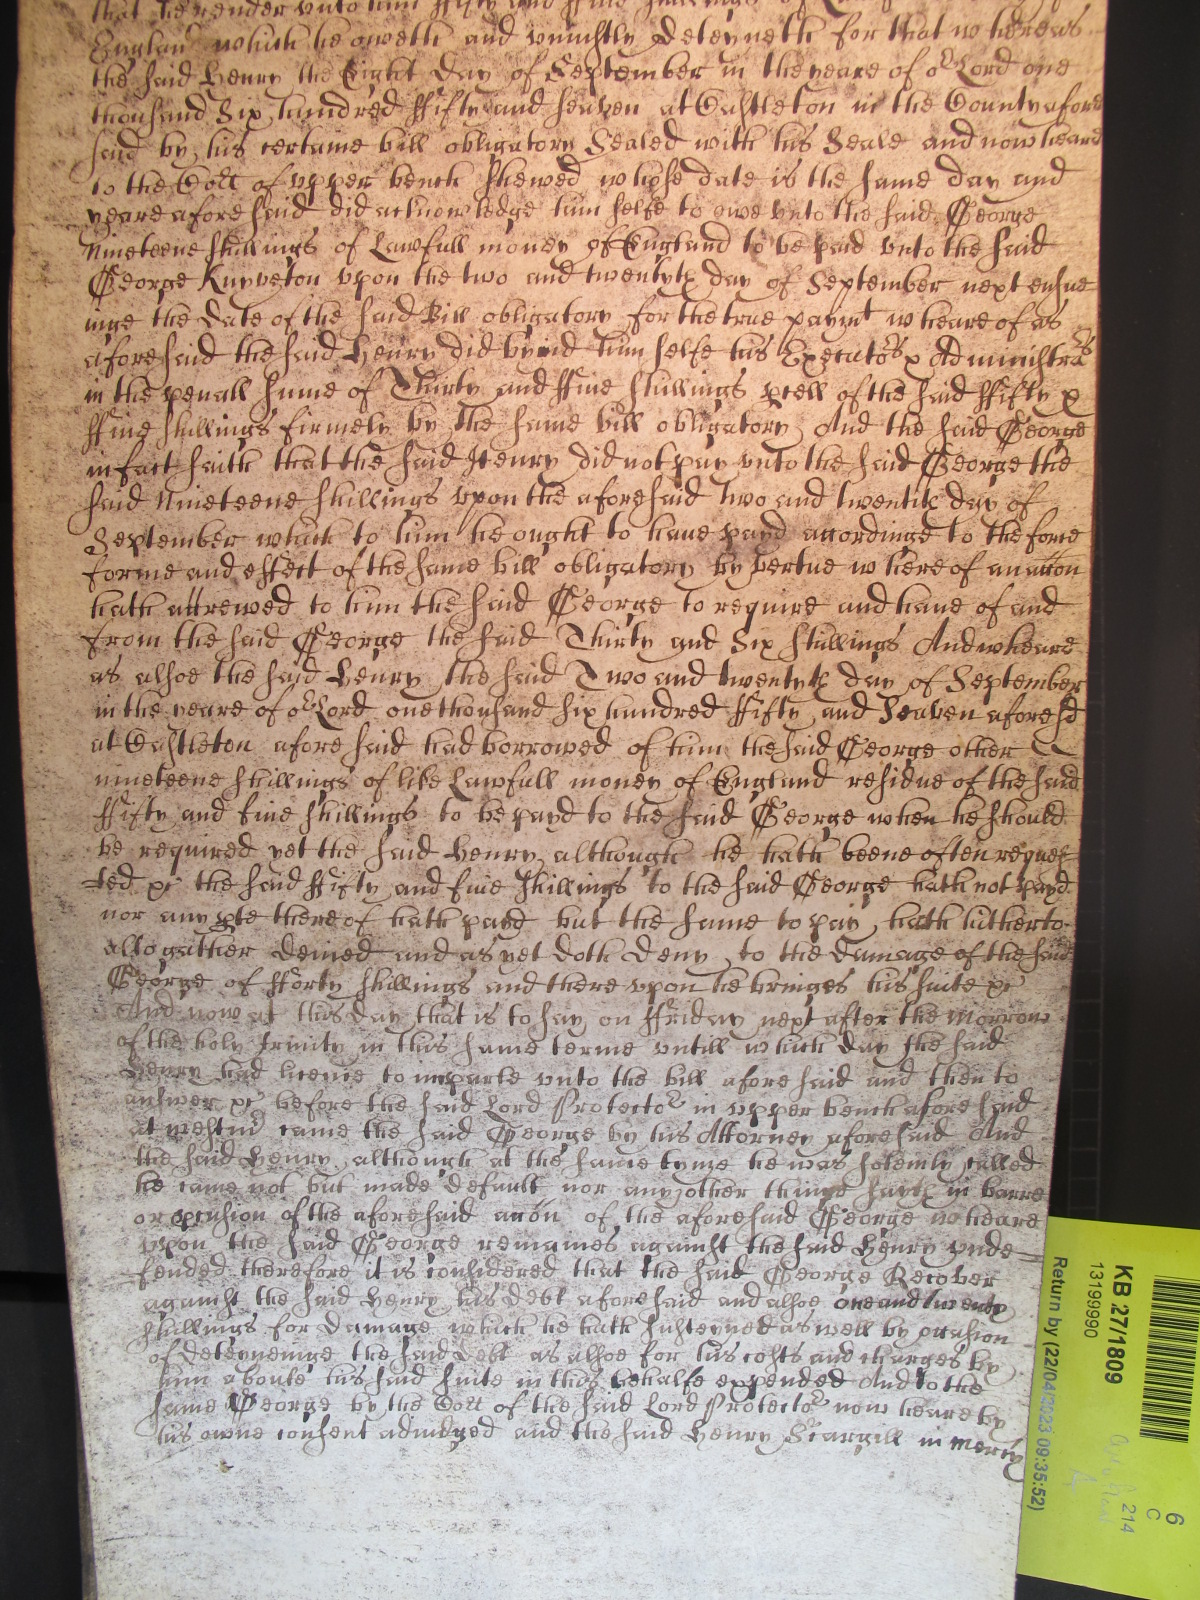 that he render unto him ffifty and ffive shillings of
England which he oweth and uniustly deteyneth for that whereas
the said Henry the Eight day of September in the yeare of or Lord one
thousand Six hundred ffifty and seaven at Castleton in the County afore
said by his certaine bill obligatory Sealed with his Seale and now heare
to the Cort of upper bench shewed whose date is the same day and
yeare aforesaid did acknowledge him selfe to owe unto the said George
Nineteene shillings of Lawfull money of England to be paid unto the said
George Knyveton upon the two and twentyth day of September next ensue
inge the date of the said Bill obligatory for the true paymt wheareof as
aforesaid the said Henry did bynd him selfe his Executors & Administrars
in the penall summe of Thirty and ffive shillings pcell of the said ffifty &
ffive shillings firmely by the same bill obligatory And the said George
in fact saith that the said Henry did not pay unto the said George the
said Nineteene shillings upon the aforesaid two and twentith day of
September which to him he ought to have payd accordinge to the force
forme and effect of the same bill obligatory by vertue whereof an accon
hath accrewed to him the said George to require and have of and
from the said George the said Thirty and Six shillings And wheare
as alsoe the said Henry the said Two and twentyth day of September
in the yeare of or Lord one thousand six hundred ffifty and Seaven aforesd
at Castleton aforesaid had borrowed of him the said George other
nineteene shillings of like Lawfull money of England residue of the said
ffifty and five shillings to be payd to the said George when he should
be required yet the said Henry although he hath beene often reques
ted &c the said ffifty and five shillings to the said George hath not payd
nor any pte thereof hath payd but the same to pay hath hitherto
altogather denied and as yet doth deny to the damage of the said
George of fforty shillings and there upon he bringes his suite &c
And now at this day that is to say on ffriday next after the morrow
of the holy trinity in this same terme untill which day the said
Henry had licence to imparle unto the bill aforesaid and then to
answer &c before the said Lord Protector in upper bench aforesaid
at westmr came the said George by his Attorney aforesaid And
the said Henry although at the same tyme he was solemly called
he came not but made default nor any other thinge sayth in barre
or pclusion of the aforesaid accon of the aforesaid George wheare
upon the said George remaines against the said Henry unde
fended therefore it is considered that the said George Recover
against the said Henry his debt aforesaid and alsoe one and twenty
shillings for damage which he hath susteyned as well by occasion
of deteyneinge the said debt as alsoe for his costs and charges by
him aboute his said suite in this behalfe expended And to the
same George by the Cort of the said Lord Protector now heare by
his owne consent adiudged and the said Henry Scargill in mercy
KB 27/1809
13199990
Return by (22/04/2023 09:35:52)
6
C
214